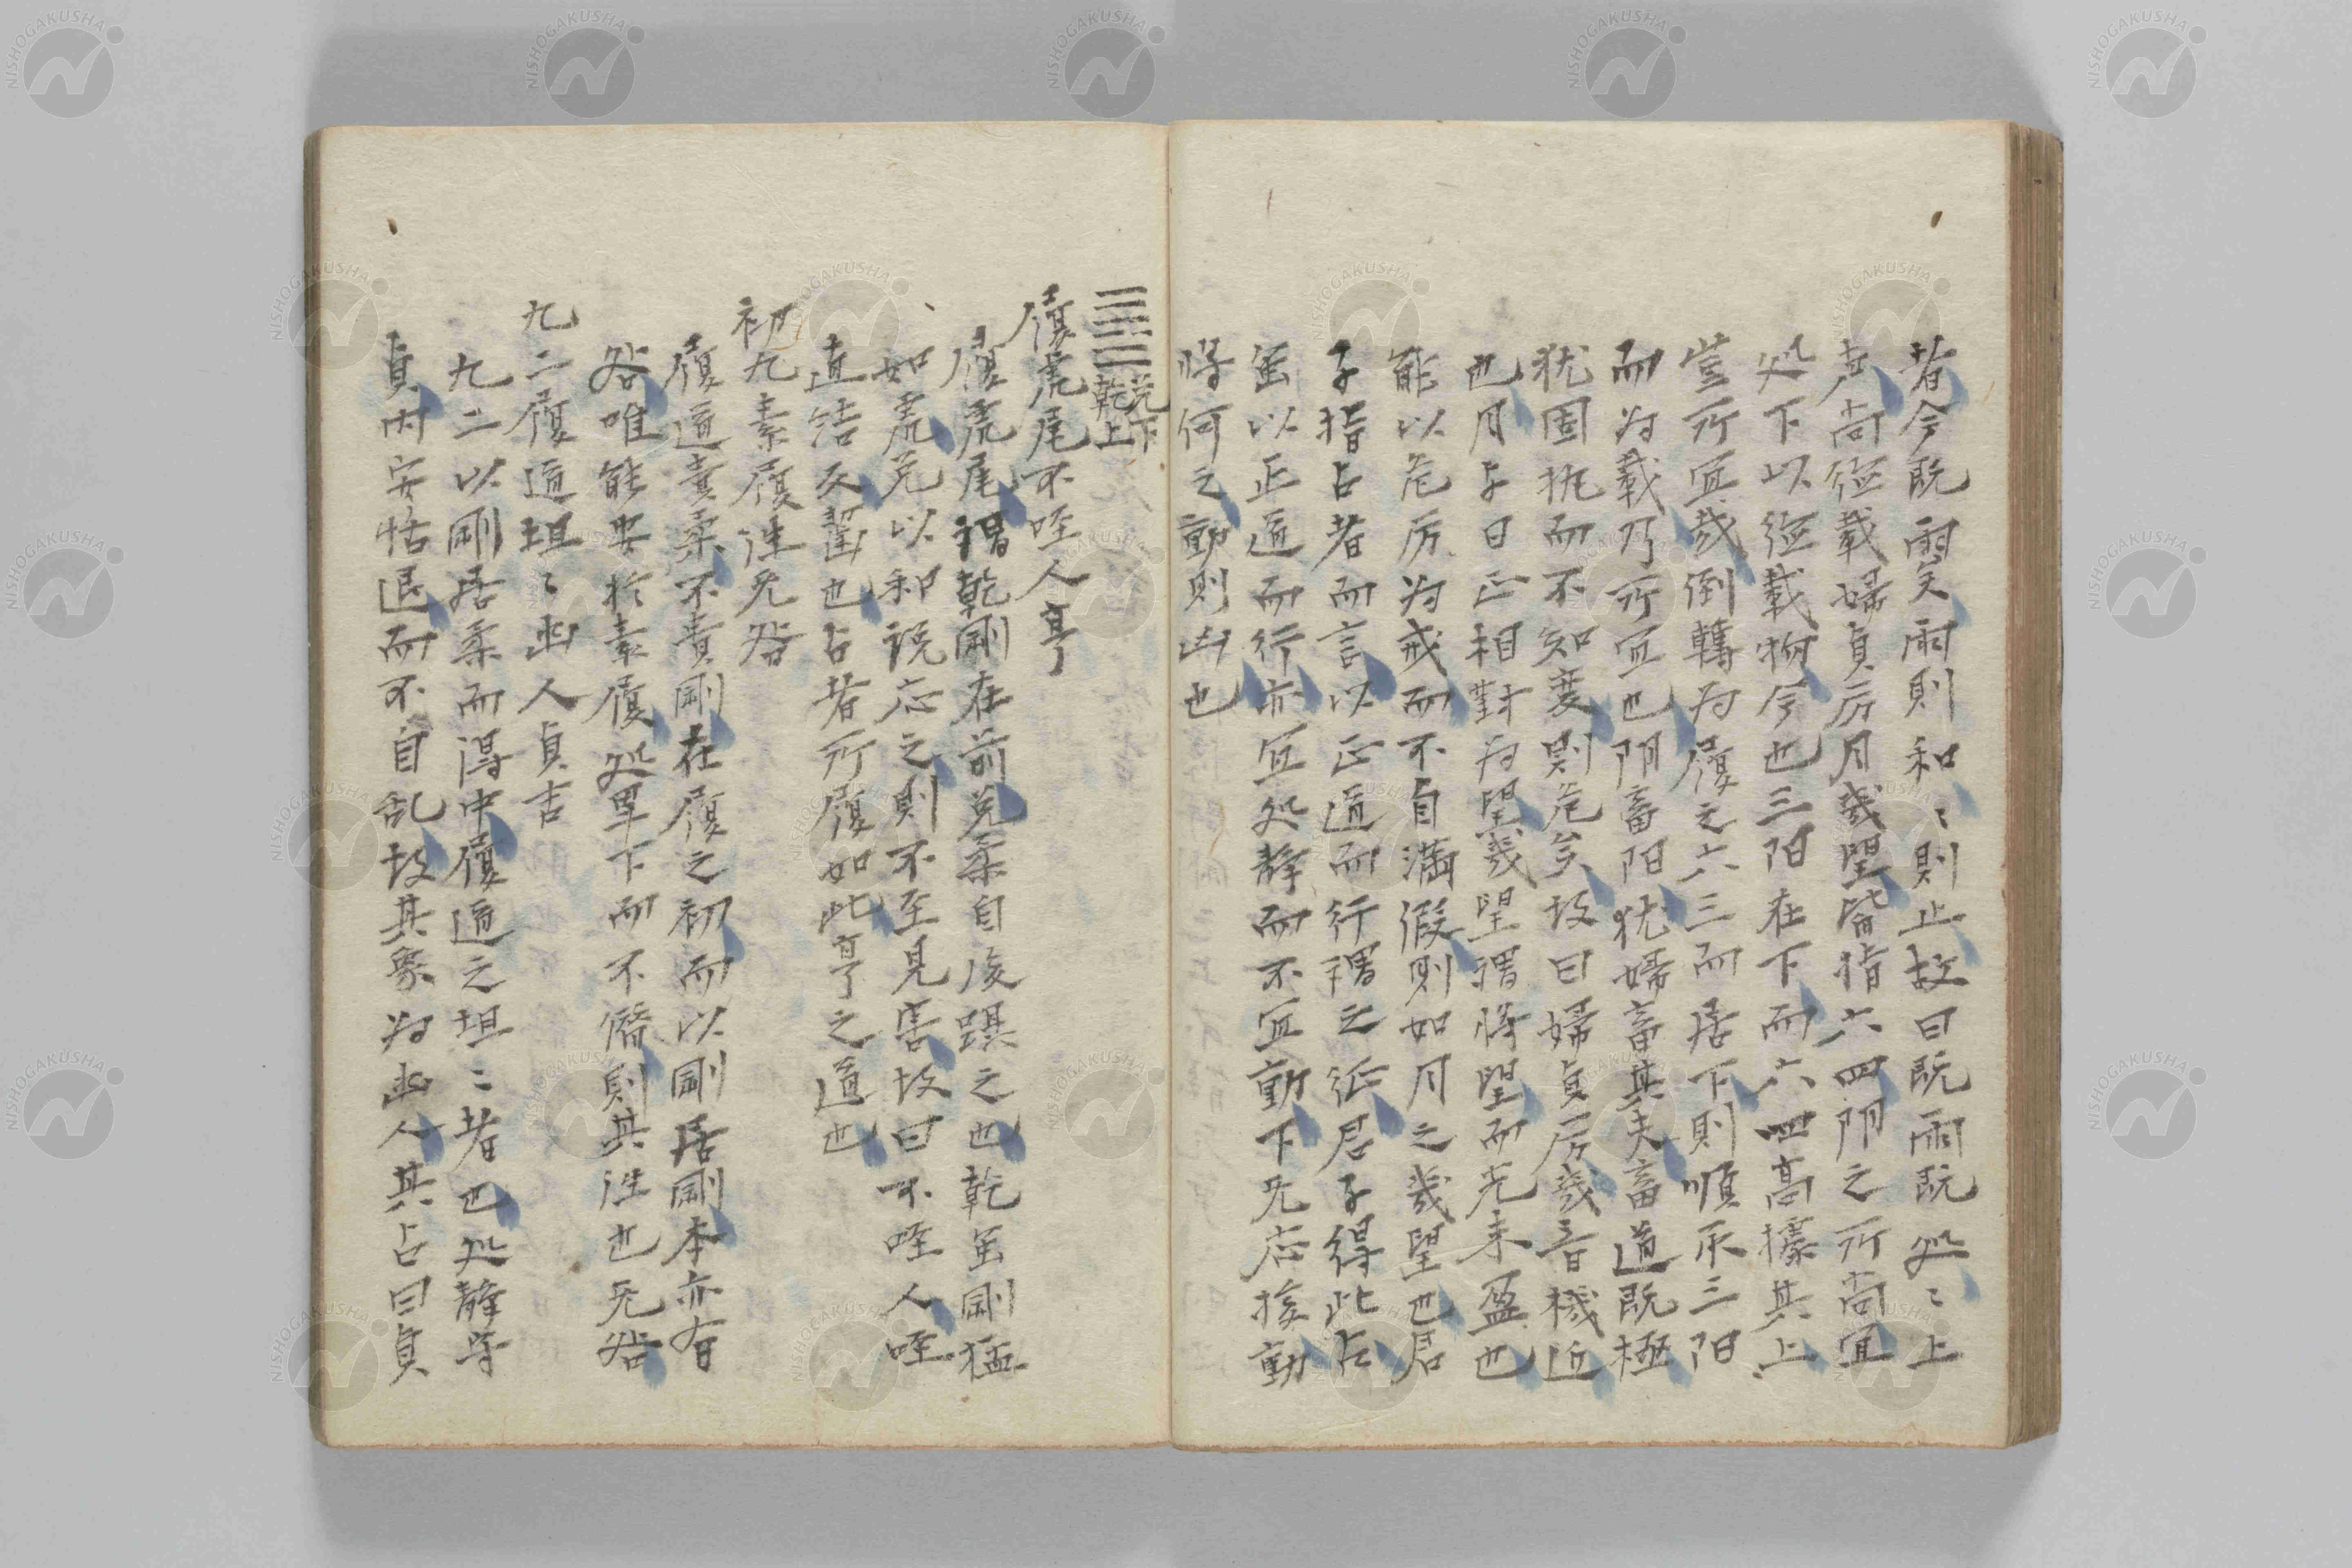 者今既雨矣雨則和〻則止故曰既雨既処〻上
声尚德載婦貞厉月幾望皆指六四阴之所尚宜
処下以德載物今也三阳在下而六四高據其上
豈所宜哉倒轉为履之六三而居下則順承三阳
而为載乃所宜也阴畜阳犹婦畜其夫畜道既極
犹固执而不知变則危矣故曰婦貞厉幾音機近
也月与日正相對为望幾望謂将望而光未盈也
能以危厉为戒而不自滿假則如月之幾望也君
子指占者而言以正道而行謂之征君子得此占
虽以正道而行亦宜处静而不宜動下无应援動
将何之動則凶也
兑下
乾上
履虎尾不咥人亨
履虎尾謂乾剛在前兑柔自後踶之也乾虽剛猛
如虎兑以和说应之則不至見害故曰不咥人咥
直结反齧也占者所履如此亨之道也
初九素履往无咎
履道貴柔不貴剛在履之初而以剛居剛本亦有
咎唯能安於素履処卑下而不僭則其往也无咎
九二履道坦〻幽人貞吉
九二以剛居柔而得中履道之坦〻者也処静守
貞内安恬退而不自乱故其象为幽人其占曰貞
NISHOGAKUSHA